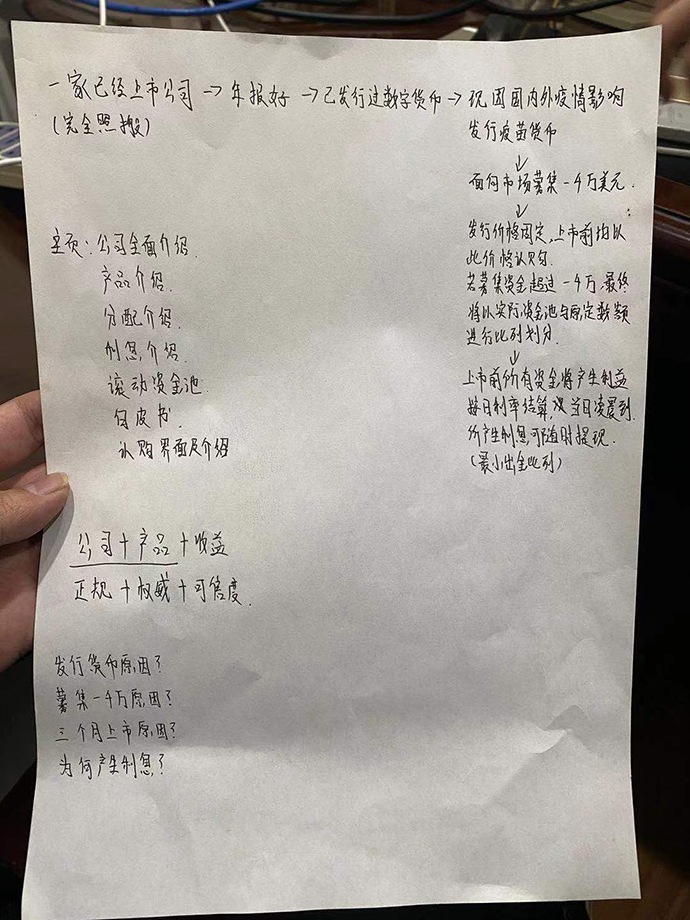 一家已经上市公司→年报好→已发行过数字货币→现因国内外疫情影响
(完全照搬)
发行疫苗货币
↓
面向市场募集一千万美元.
↓
发行价格固定,上市前均以
此价格认购.
若募集资金超过一千万,最终
将以实际资金池与原定数额
进行比列划分.
↓
上市前所有资金将产生利益
按日利率结算,次日凌晨到.
所产生利息,可随时提现.
(最小出金比列)
主页:公司全面介绍.
产品介绍.
分配介绍.
利息,介绍.
滚动资金池.
白皮书.
认购界面及介绍
公司+产品+收益
正规+权威+可信度.
发行货币原因?
募集一千万原因?
三个月上市原因?
为何产生利息?